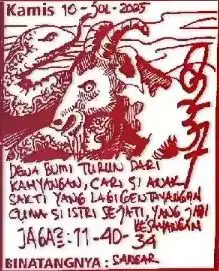 Kamis 10 - JUL - 2025
DEWA BUMI TURUN DARI
KAHYANGAN, CARI SI ANAK
SAKTI YANG LAGI GENTAYANGAN
CUMA SI ISTRI SEJATI YANG JADI
KESAYANGAN
JAGA2 : 11 - 40 - 34
BINATANGNYA : SANGAR